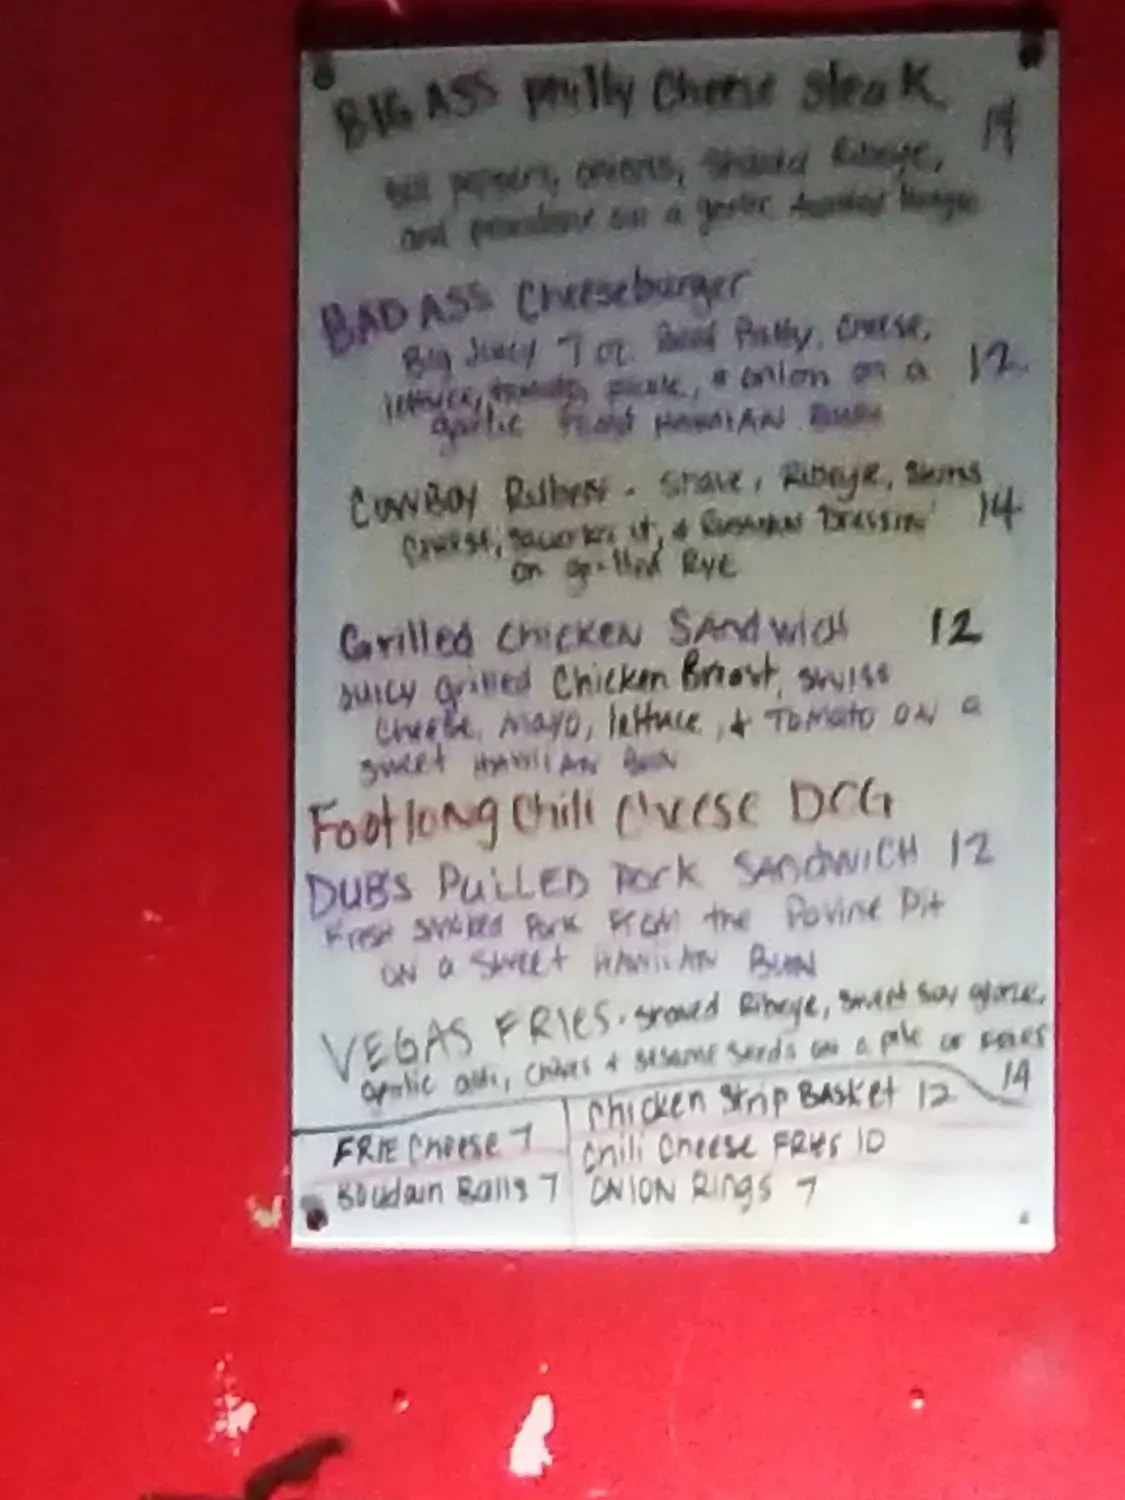 BIG ASS philly Cheese steak
14
Bell peppers, onions, shaved Ribeye,
and provolone on a garlic toasted Hoagie
BAD ASS Cheeseburger
Big Juicy 7 oz. Beef Patty, Cheese,
lettuce, tomato, pickle, & onion on a 12
garlic toast HAWAIAN Bun
COWBOY Rueben - shave, Ribeye, Swiss
Cheese, & Russian Dressin 14
on grilled RyE
Grilled CHICKEN SANdwich 12
Juicy grilled Chicken Breast, swiss
Cheese, Mayo, lettuce, & Tomato ON a
sweet HAWIIAN Bun
Footlong Chili Cheese DOG
DUB'S PULLED Pork SANdWICH 12
Fresh smoked Pork From the Bovine Pit
ON a Sweet HAWIIAN BUN
VEGAS FRIES - shaved Ribeye, sweet Soy glaze,
garlic aoli, chives & sesame seeds on a pile of FRIES
14
Chicken Strip BASket 12
FRIE Cheese 7
Chili Cheese FRIES 10
Boudain Balls 7
ONION Rings 7